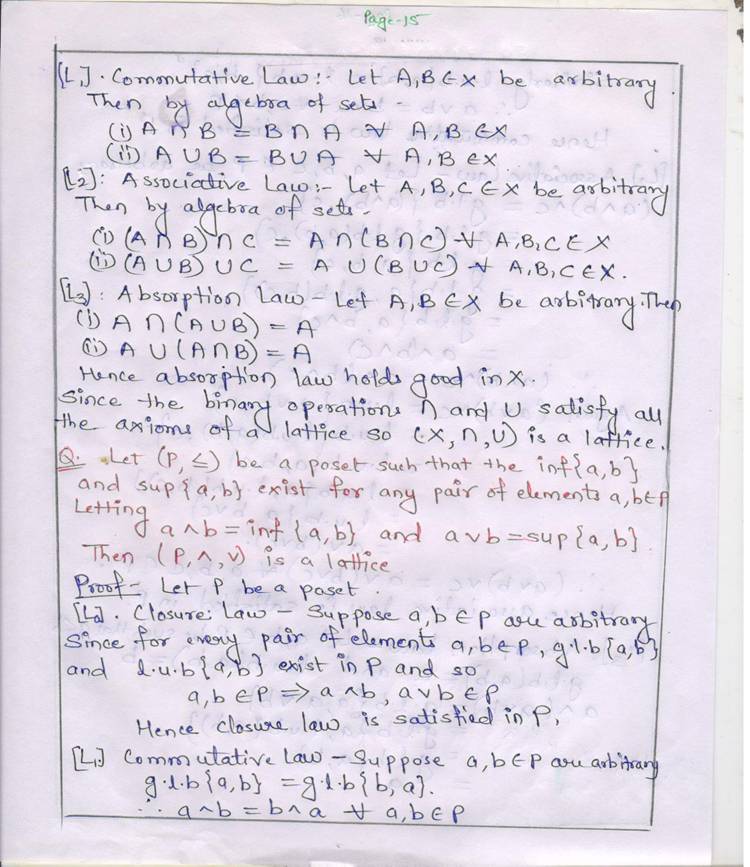 Page-15
[L₁]. Commutative Law:- Let A,B∈X be arbitrary.
Then by algebra of sets -
(i) A ∩ B = B ∩ A ∀ A,B ∈X
(ii) A ∪ B = B ∪ A ∀ A,B ∈X
[L₂]: Associative Law:- Let A,B,C ∈X be arbitrary
Then by algebra of sets -
(i) (A ∩ B) ∩ C = A ∩ (B ∩ C) ∀ A,B,C ∈ X
(ii) (A ∪ B) ∪ C = A ∪ (B ∪ C) ∀ A,B,C ∈X.
[L₃]: Absorption Law - Let A,B∈X be arbitrary. Then
(i) A ∩ (A ∪ B) = A
(ii) A ∪ (A ∩ B) = A
Hence absorption law holds good in X.
Since the binary operations ∩ and ∪ satisfy all
the axioms of a lattice so (X, ∩, ∪) is a lattice.
Q. Let (P, ≤) be a poset such that the inf{a,b}
and sup{a,b} exist for any pair of elements a,b∈P
Letting
a ∧ b = inf {a,b} and a ∨ b = sup{a,b}.
Then (P, ∧, ∨) is a lattice.
Proof - Let P be a poset.
[L₀]. Closure Law - Suppose a,b ∈ P are arbitrary
Since for every pair of elements a,b∈P, g.l.b{a,b}
and l.u.b{a,b} exist in P and so
a,b ∈P ⇒ a ∧ b, a ∨ b ∈ P
Hence closure law is satisfied in P.
[L₁] Commutative Law - Suppose a,b ∈ P are arbitrary
g.l.b{a,b} = g.l.b{b,a}.
∴ a ∧ b = b ∧ a ∀ a,b∈P